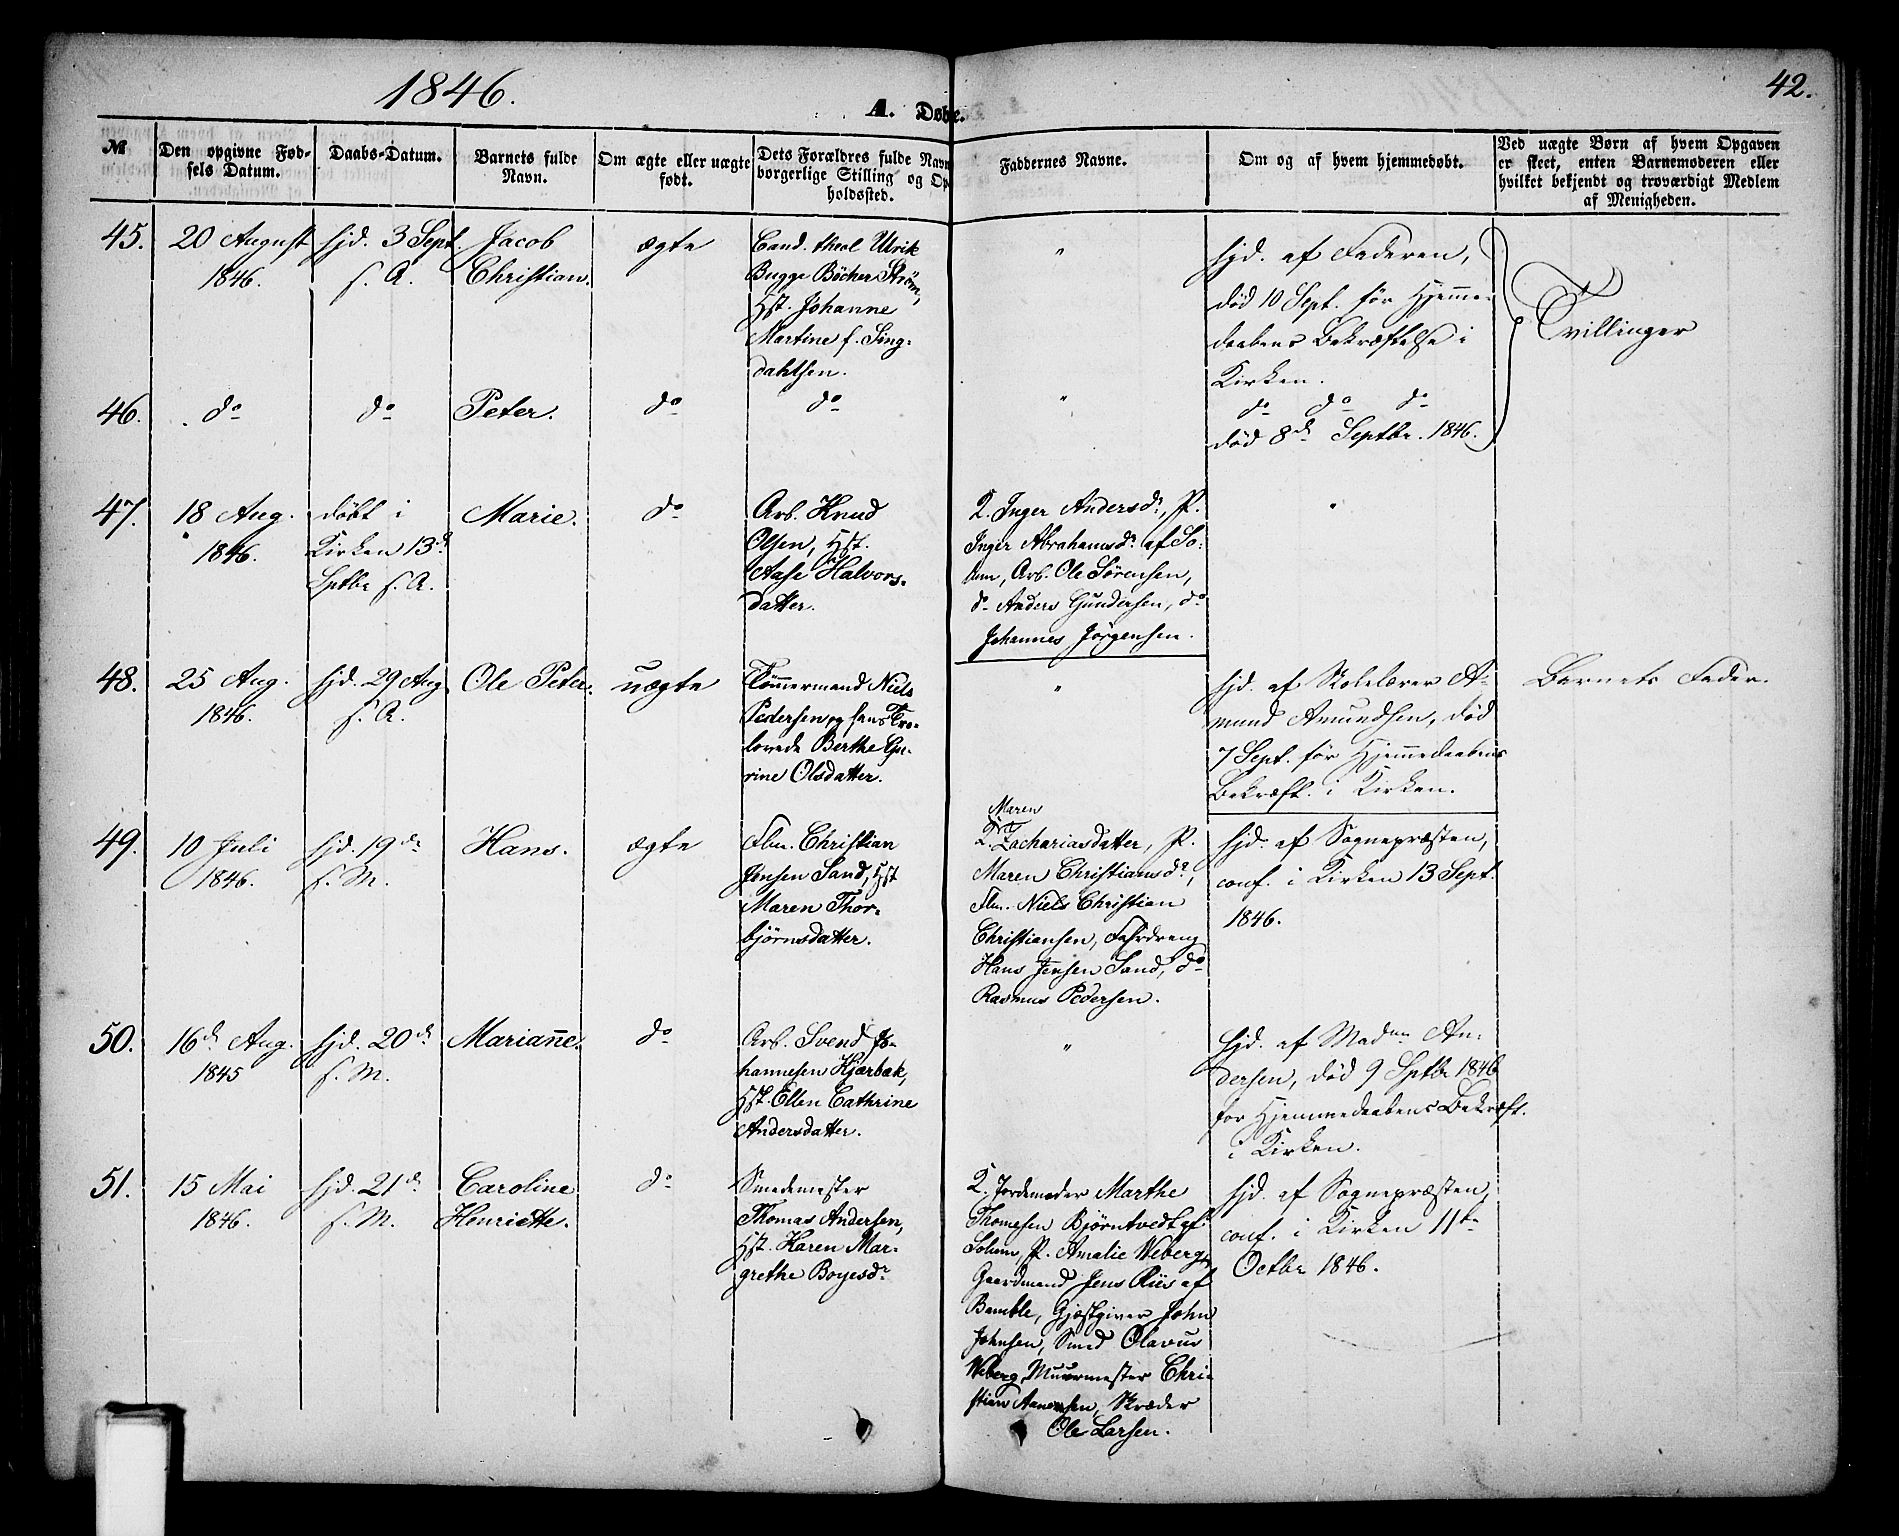 1846.
42.
A. Døbte.
№
Den opgivne Fød-
sels Datum.
Daabs-Datum.
Barnets fulde
Navn.
Om ægte eller uægte
født.
Dets Forældres fulde Navn
borgerlige Stilling og Op-
holdssted.
Faddernes Navne.
Om og af hvem hjemmedøbt.
Ved uægte Børn af hvem Opgaven
er skeet, enten Barnemoderen eller
hvilket bekjendt og troværdigt Medlem
af Menigheden.
45.
20 August
1846.
hjd. 3 Sept.
s. A.
Jacob
Christian.
ægte
Cand. theol Ulrik
Bugge Böcher Strøm,
Hst. Johanne
Martine f. Sing-
dahlsen.
"
hjd. af Faderen,
død 10 Sept. før Hjemme-
daabens Bekræftelse i
Kirken.
Tvillinger
46.
do
do
Peter.
do
do
"
do do do
død 8de Septbr. 1846.
47.
18 Aug.
1846.
døbt i
Kirken 13de
Sptbr s. A.
Marie.
do
Arb. Knud
Olsen, Hst.
Aase Halvors-
datter.
Q. Inger Andersdr, P.
Inger Abrahamsdr af So-
lum, Arb. Ole Sörensen,
do Anders Gundersen, do
Johannes Jørgensen.
"
48.
25 Aug.
1846.
hjd. 29 Aug
s. A.
Ole Peter.
uægte
Tømmermand Niels
Pedersen og hans Tro-
lovede Berthe Gu-
rine Olsdatter.
"
hjd. af Skolelærer A-
mund Amundsen, død
7 Sept. før Hjemmedaabens
Bekræft. i Kirken.
Barnets Fader.
49.
10 Juli
1846.
hjd. 19de
s. M.
Hans.
ægte
Flm. Christian
Jensen Sand, Hst
Maren Thor-
bjørnsdatter.
Maren
Q. Zachariasdatter, P.
Maren Christiansdr,
Flm. Niels Christian
Christiansen, Fardreng
Hans Jensen Sand, do
Rasmus Pedersen.
hjd. af Sognepræsten,
conf. i Kirken 13 Sept.
1846.
50.
16de Aug.
1845
hjd. 20de
s. M.
Marianne.
do
Arb. Svend Jo-
hannesen Kjærbak,
Hst. Ellen Cathrine
Andersdatter.
"
hjd. af Madme An-
dersen, død 9 Sptbr 1846
for Hjemmedaabens Bekræft.
i Kirken.
51.
15 Mai
1846.
hjd. 21de
s. M.
Caroline
Henriette.
do
Smedemester
Thomas Andersen,
Hst. Karen Mar-
grethe Boyesdr
Q. Jordemoder Marthe
Thomesen Bjørntvedt gf.
Solum, P. Amalie Weberg,
Gaardmand Jens Riis af
Bamble, Gjæstgiver John
Johnsen, Smed Olavus
Weberg, Muurmester Chri-
stian Aanonsen, Skræder
Ole Larsen.
hjd. af Sognepræsten,
conf. i Kirken 11te
Octbr 1846.